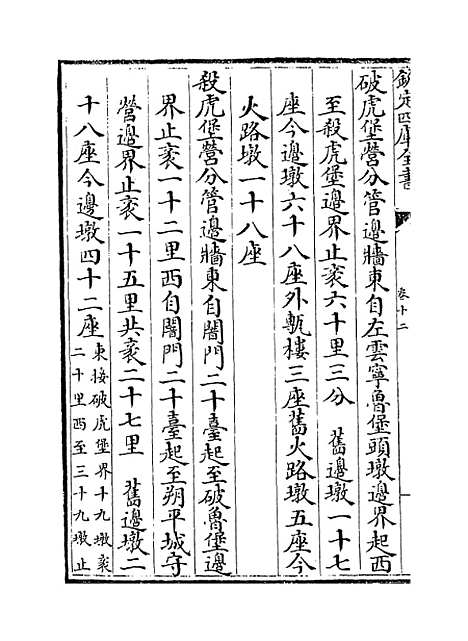 欽定四庫全書
卷十二
破虎堡營分管邊牆東自左雲寧魯堡頭墩邊界起西
至殺虎堡邊界止袤六十里三分　舊邊墩一十七
座今邊墩六十八座外甎樓三座舊火路墩五座今
火路墩一十八座
殺虎堡營分管邊牆東自闇門二十臺起至破魯堡邊
界止袤一十二里西自闇門二十臺起至朔平城守
營邊界止袤一十五里共袤二十七里　舊邊墩二
十八座今邊墩四十二座
東接破虎堡界十九墩袤
二十里西至三十九墩止